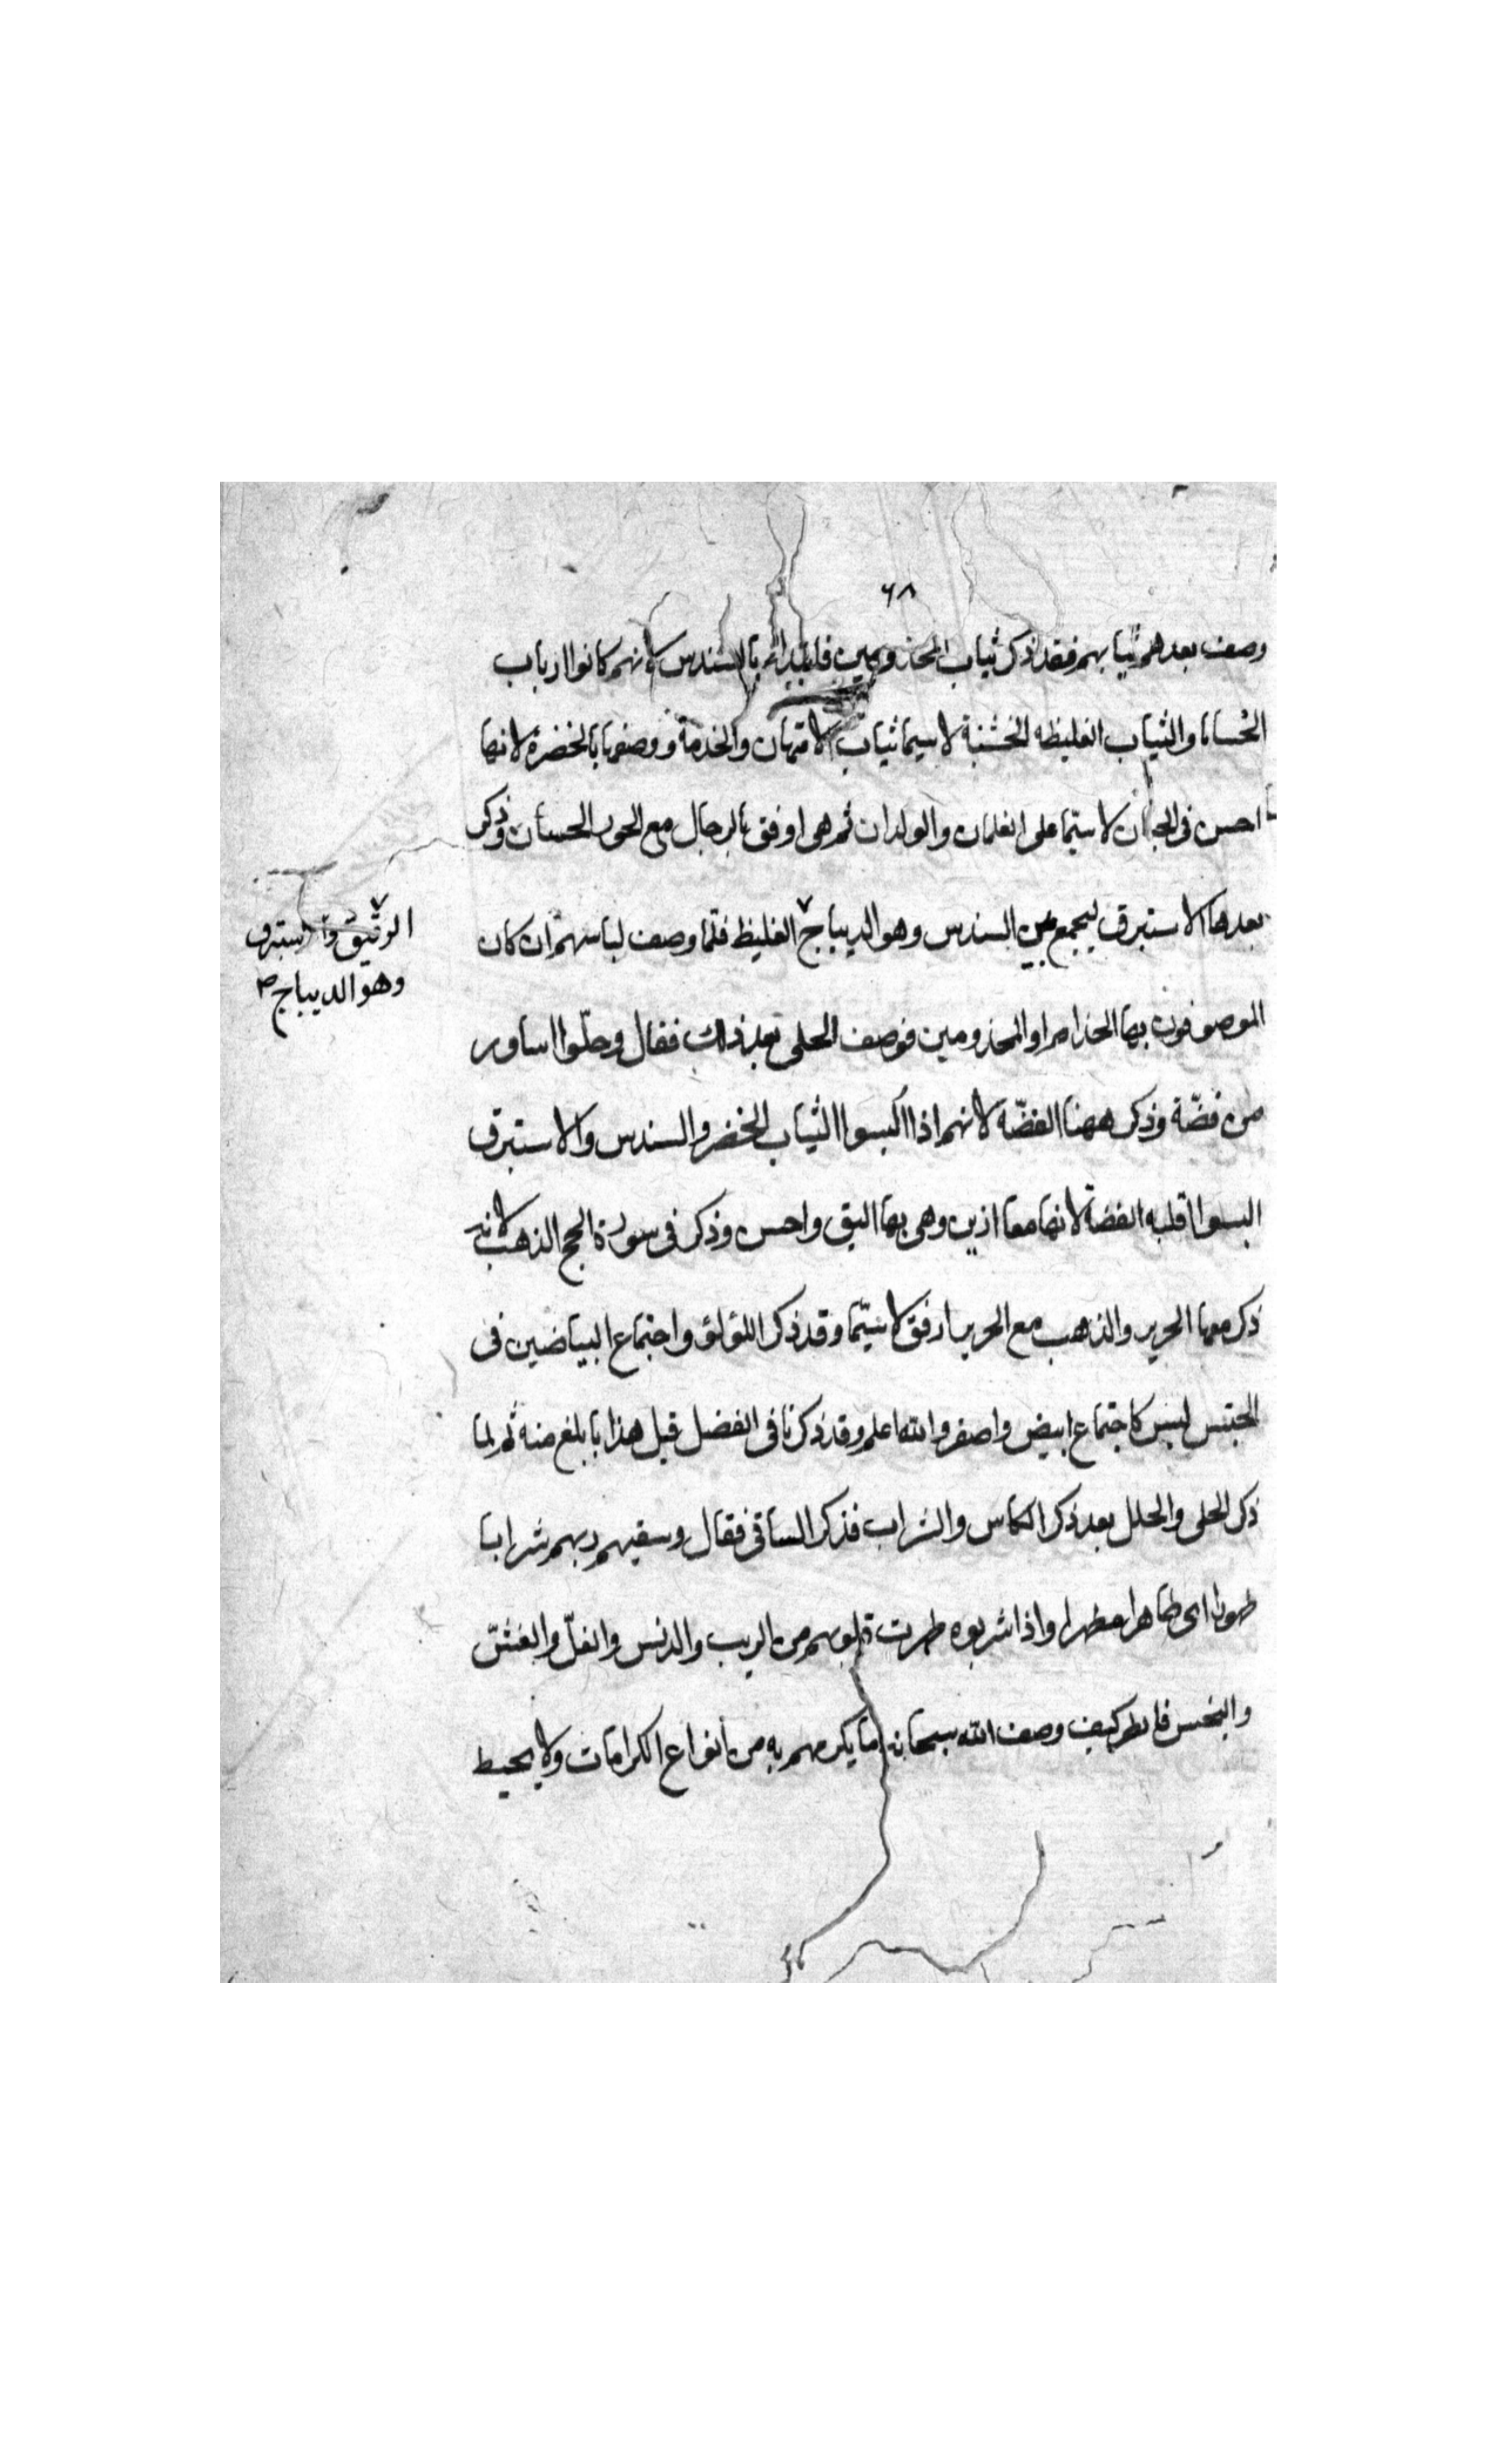 ٦٨
وصف بعدهم ثيابهم فقد ذكر ثياب المخدومين فابتداء بالسندس لانهم كانوا ارباب
والثياب الغليظه الخشنة لاسيما ثياب الامتهان والخدمة ووصفها بالخضرة لانها
احسن فى الجنان لاسيما على الغلمان والولدان ثم هى اوفق بالرجال مع الحور الحسان وذكر
بعدها الاستبرق ليجمع بين السندس وهو الديباج الغليظ فلما وصف لباسهم ان كان
الرقيق والاستبرق
وهو الديباج صح
الموصوفون بها الخدام او المخدومين فوصف الحلى بعد ذلك فقال وحلّوا اساور
من فضّة وذكر ههنا الفضّة لانهم اذا اكسوا الثياب الخضر والسندس والاستبرق
البسوا اقلبه الفضة لانها معا ازين وهى بها اليق واحسن وذكر فى سورة الحج الذهب لانه
ذكر معها الحرير والذهب مع الحرير ارفق لاسيّما وقد ذكر اللؤلؤ واجتماع البياضين فى
الجنس ليس كاجتماع ابيض واصفر والله اعلم وقد ذكرنا فى الفضل قبل هذا بابلغ منه ثم لما
ذكر الحلى والحلل بعد ذكر الكاس والشراب فذكر الساقى فقال وسقيهم ربهم شرابا
طهورا اى طاهرا مطهرا واذا شربوه طهرت قلوبهم من الريب والدنس والغلّ والغشّ
والبخس فانظر كيف وصف الله سبحانه ما يكرمهم به من انواع الكرامات ولا يحيط